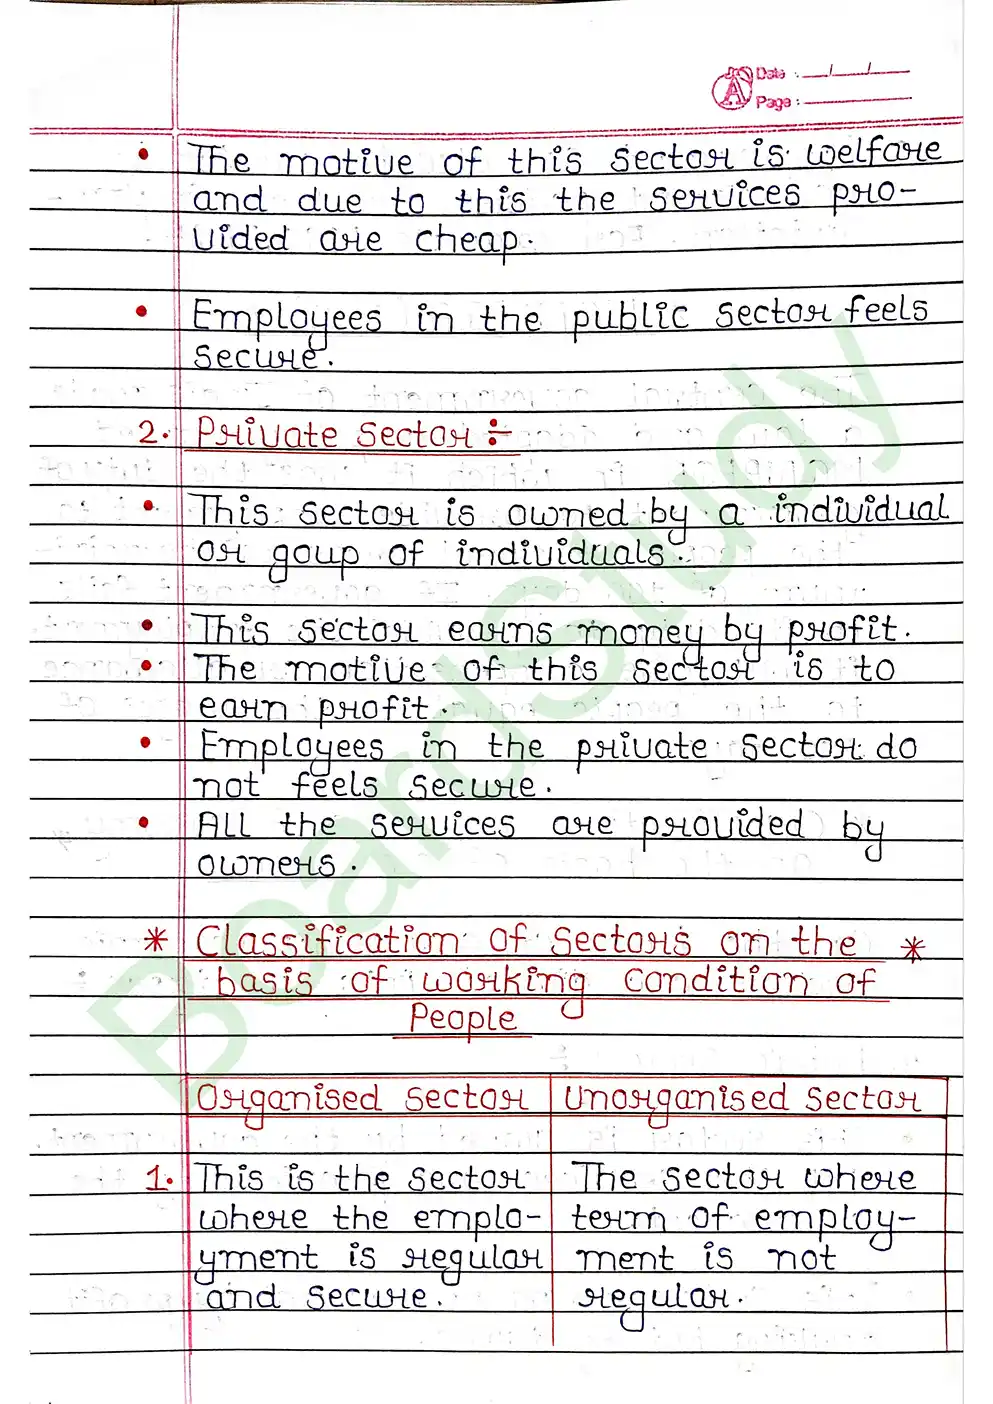 Date : __/__/__
Page :
• The motive of this sector is welfare
and due to this the services pro-
vided are cheap.
• Employees in the public sector feels
secure.
2. Private sector :-
• This sector is owned by a individual
or goup of individuals.
• This sector earns money by profit.
• The motive of this sector is to
earn profit.
• Employees in the private sector do
not feels secure.
• All the services are provided by
owners.
* Classification of sectors on the *
basis of working condition of
People
Organised sector Unorganised sector
1. This is the sector The sector where
where the emplo- term of employ-
yment is regular ment is not
and secure. regular.
BoardStudy